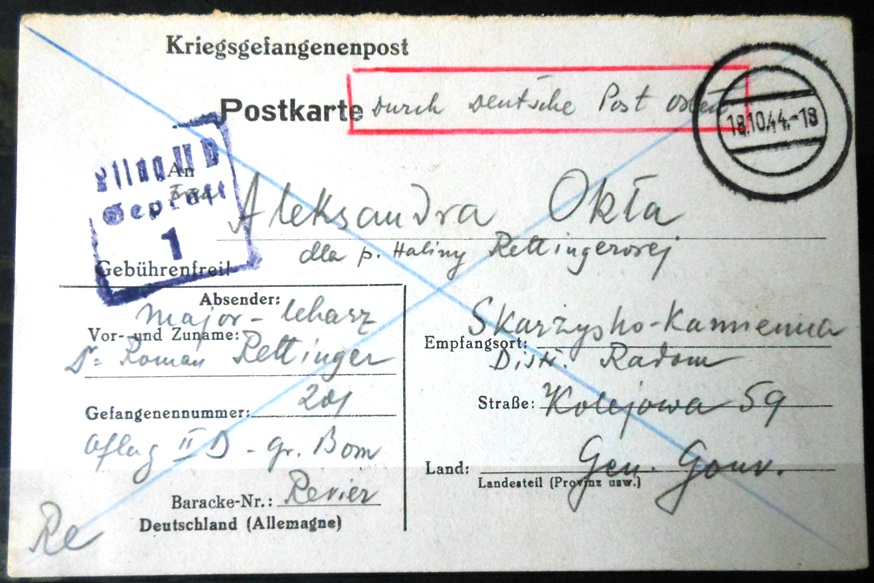 Kriegsgefangenenpost
Postkarte durch Deutsche Post Osten
18.10.44.-18
Geprüft
1
An
Frau Aleksandra Okła
dla p. Haliny Rettingerowej
Gebührenfrei!
Absender:
Major-lekarz
Vor- und Zuname:
Dr. Roman Rettinger
Gefangenennummer: 201
Oflag II D - Gr. Born
Baracke-Nr.: Revier
Deutschland (Allemagne)
Re
Skarżysko-Kamienna
Empfangsort:
Distr. Radom
Straße: Kolejowa 59
Land: Gen. Gouv.
Landesteil (Provinz usw.)